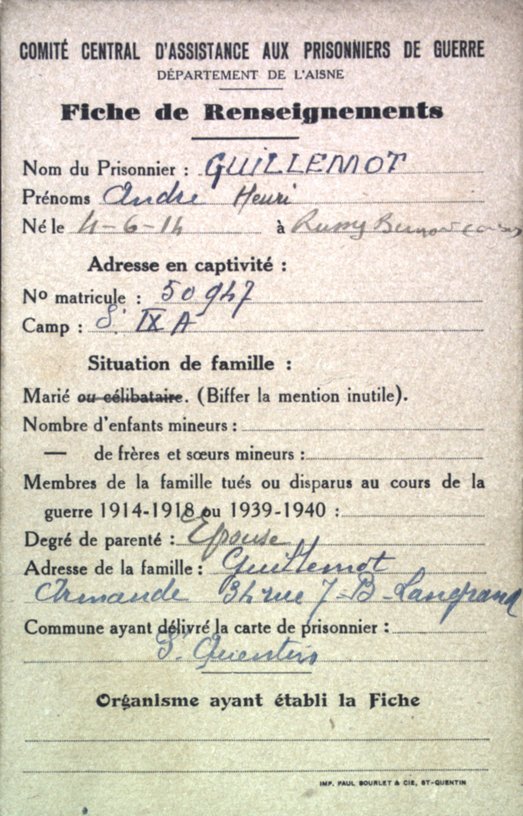 COMITÉ CENTRAL D'ASSISTANCE AUX PRISONNIERS DE GUERRE
DÉPARTEMENT DE L'AISNE
Fiche de Renseignements
Nom du Prisonnier : GUILLEMOT
Prénoms André Henri
Né le 4-6-14 à Rumy
Adresse en captivité :
No matricule : 50947
Camp : S. IX A
Situation de famille :
Marié ou célibataire. (Biffer la mention inutile).
Nombre d'enfants mineurs :
— de frères et sœurs mineurs :
Membres de la famille tués ou disparus au cours de la
guerre 1914-1918 ou 1939-1940 :
Degré de parenté : Epouse
Adresse de la famille : Guillemot
Armande 34 rue J-B-Langrand
Commune ayant délivré la carte de prisonnier :
St Quentin
Organisme ayant établi la Fiche
IMP. PAUL BOURLET & CIE, ST-QUENTIN